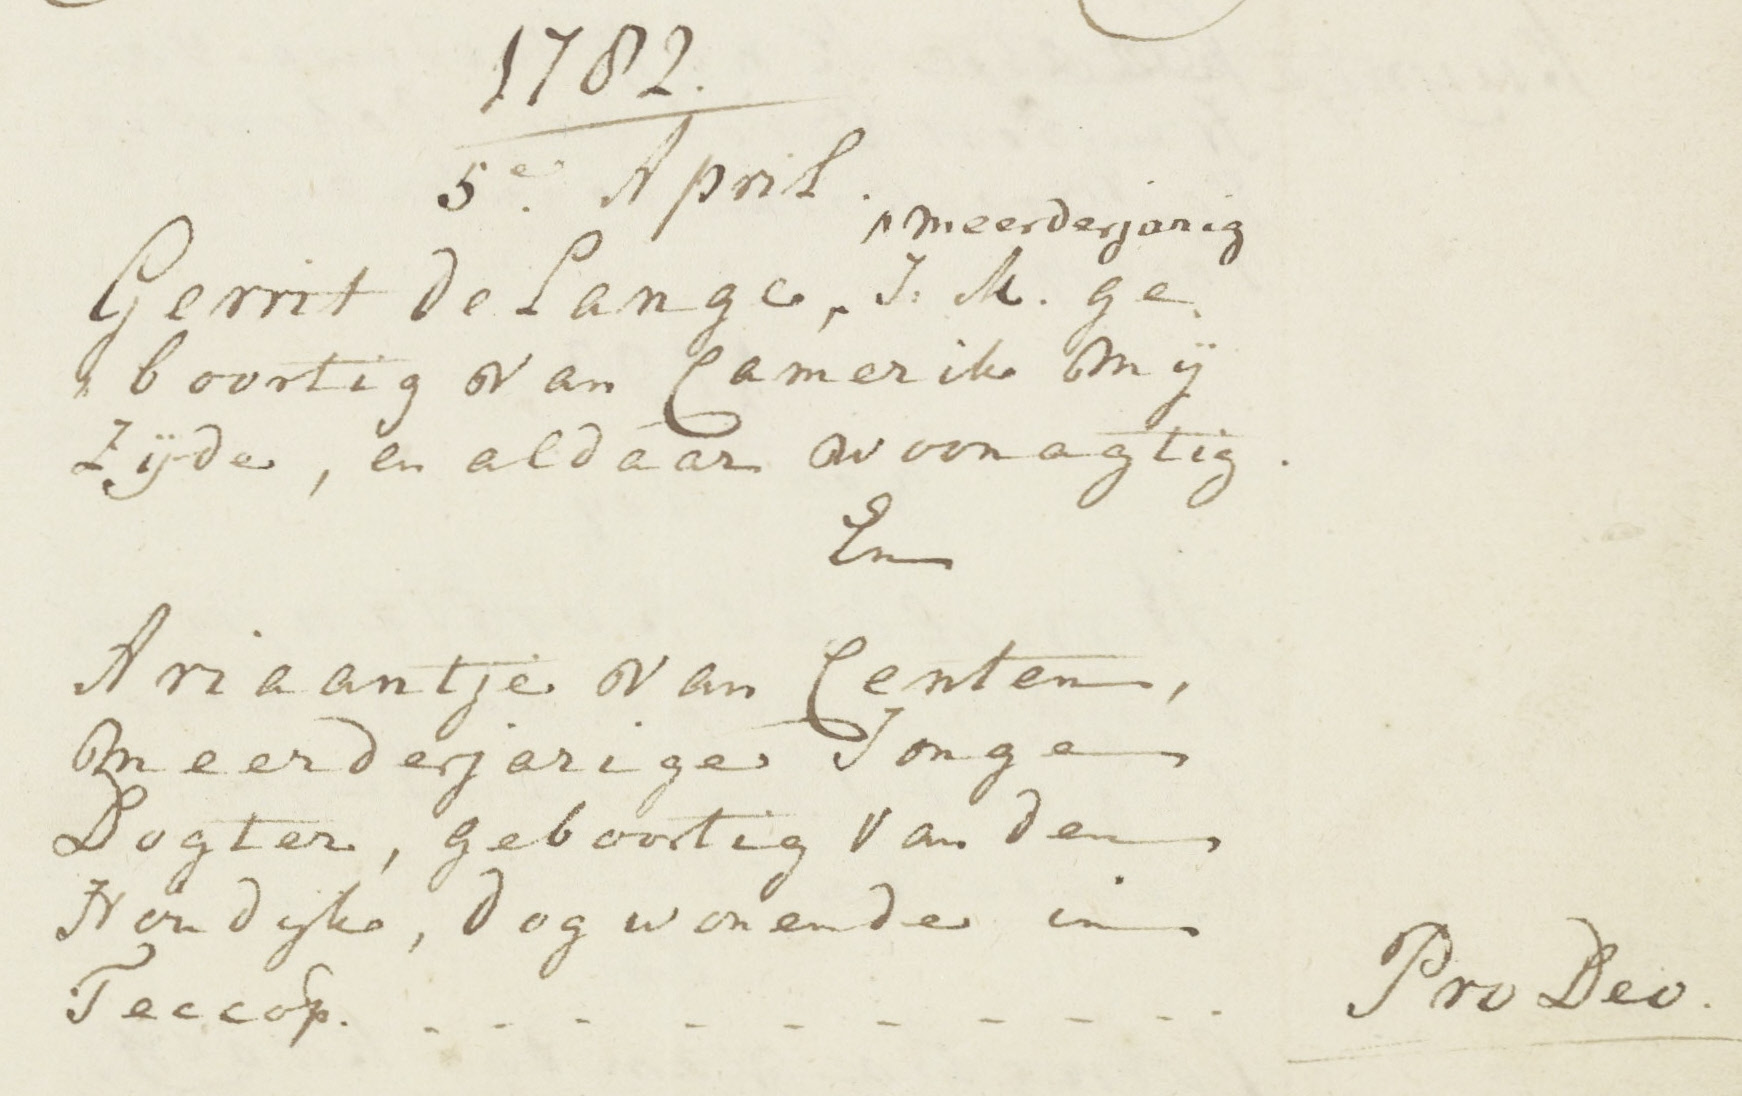 1782.
5e. April.
meerderjarig
Gerrit de Lange, J. M. ge
boortig van Camerik Mÿ
Zÿde, en aldaar woonagtig.
En
Ariaantje van Centen,
meerderjarige Jonge
Dogter, geboortig van den
Hondÿk, dog wonende in
Teccop. - - - - - - - - - Pro Deo.